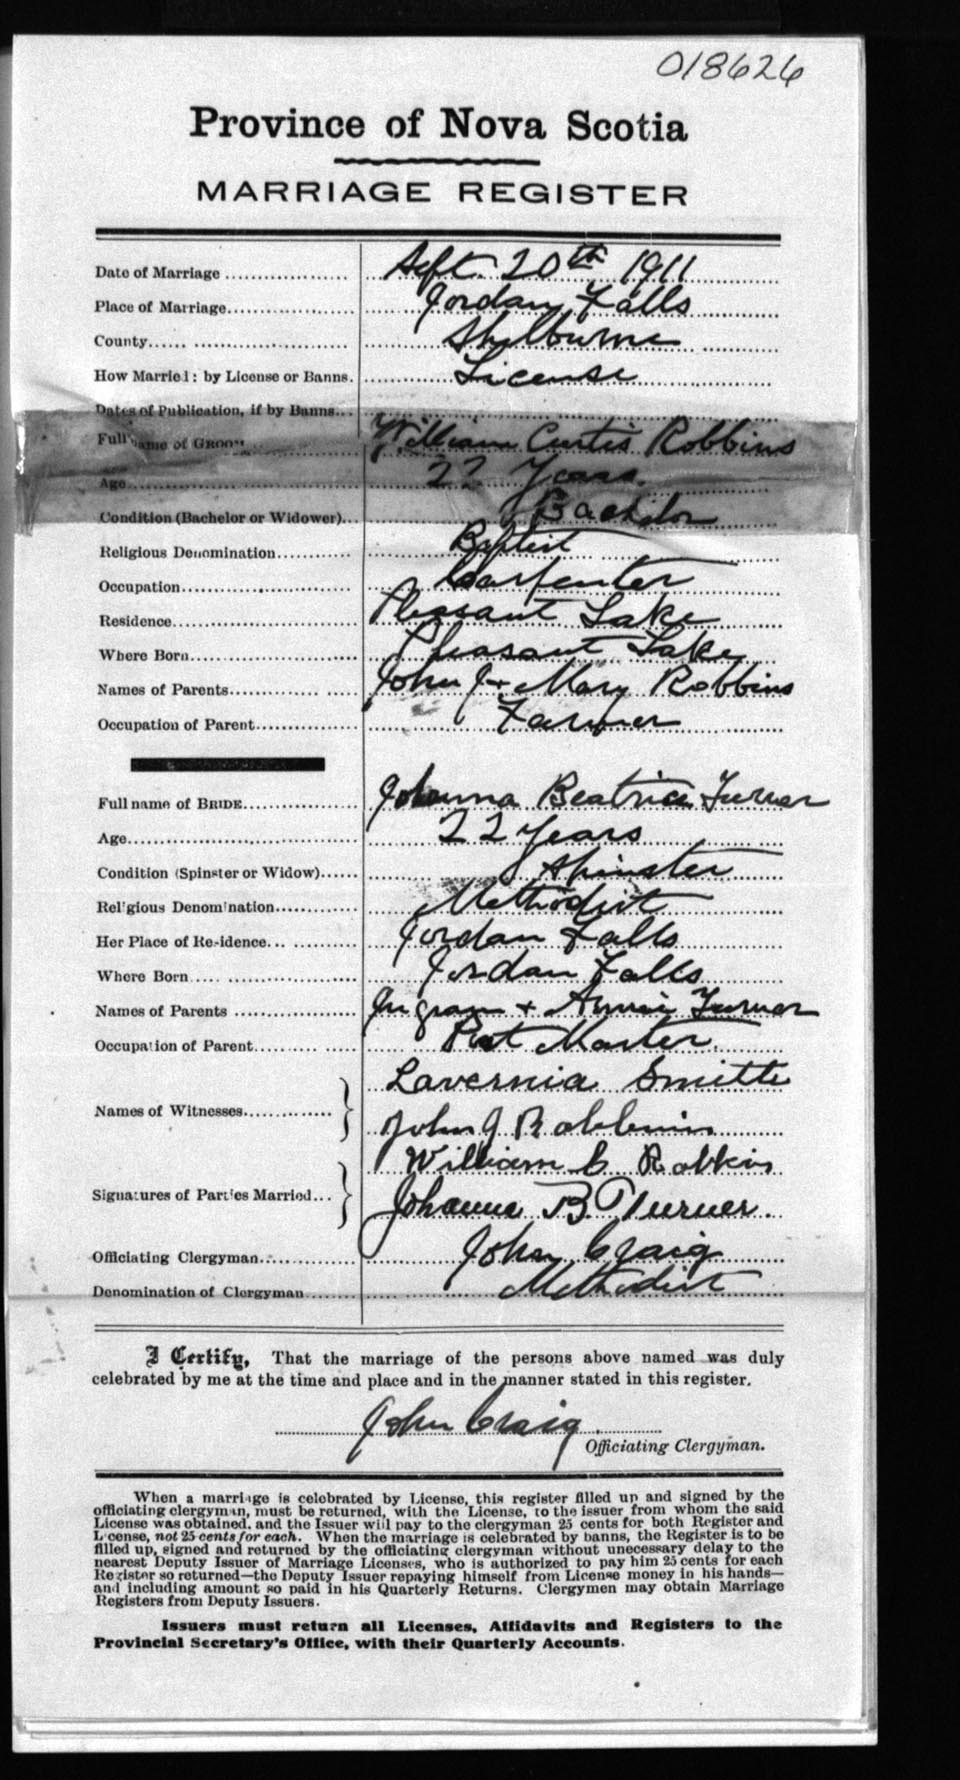 018626
Province of Nova Scotia
MARRIAGE REGISTER
Date of Marriage Sept. 20th 1911
Place of Marriage Jordan Falls
County Shelburne
How Married: by License or Banns. License
Dates of Publication, if by Banns
Full name of GROOM William Curtis Robbins
Age 22 Years.
Condition (Bachelor or Widower) Bachelor
Religious Denomination Baptist
Occupation Carpenter
Residence Pleasant Lake
Where Born Pleasant Lake
Names of Parents John J + Mary Robbins
Occupation of Parent Farmer
Full name of BRIDE Johanna Beatrice Turner
Age 22 Years
Condition (Spinster or Widow) Spinster
Religious Denomination Methodist
Her Place of Residence Jordan Falls
Where Born Jordan Falls
Names of Parents Ingram + Annie Turner
Occupation of Parent Post Master.
Lavernia Smith
Names of Witnesses
John J Robbins
William C Robbins
Signatures of Parties Married
Johanna B. Turner.
Officiating Clergyman John Craig
Denomination of Clergyman Methodist
I Certify, That the marriage of the persons above named was duly
celebrated by me at the time and place and in the manner stated in this register.
John Craig
Officiating Clergyman.
When a marriage is celebrated by License, this register filled up and signed by the
officiating clergyman, must be returned, with the License, to the issuer from whom the said
License was obtained, and the Issuer will pay to the clergyman 25 cents for both Register and
License, not 25 cents for each. When the marriage is celebrated by banns, the Register is to be
filled up, signed and returned by the officiating clergyman without unecessary delay to the
nearest Deputy Issuer of Marriage Licenses, who is authorized to pay him 25 cents for each
Register so returned—the Deputy Issuer repaying himself from License money in his hands—
and including amount so paid in his Quarterly Returns. Clergymen may obtain Marriage
Registers from Deputy Issuers.
Issuers must return all Licenses, Affidavits and Registers to the
Provincial Secretary's Office, with their Quarterly Accounts.